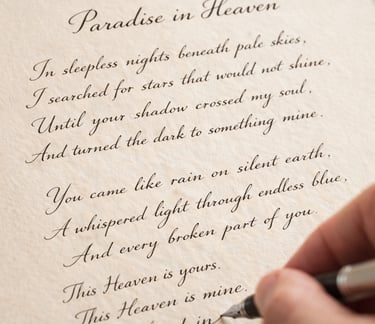 Paradise in Heaven
In sleepless nights beneath pale skies,
I searched for stars that would not shine,
Until your shadow crossed my soul,
And turned the dark to something mine.
You came like rain on silent earth,
A whispered light through endless blue,
And every broken part of you.
This Heaven is yours.
This Heaven is mine.
in